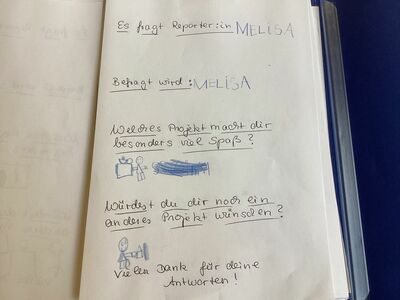 Es fragt Reporter:in MELISA
Befragt wird: MELISA
Welches Projekt macht dir
besonders viel Spaß?
Würdest du dir noch ein
anderes Projekt wünschen?
Vielen Dank für deine
Antworten!